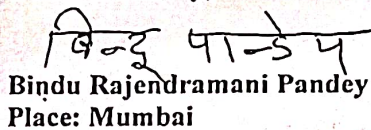 बिन्दू पान्डेय
Bindu Rajendramani Pandey
Place: Mumbai